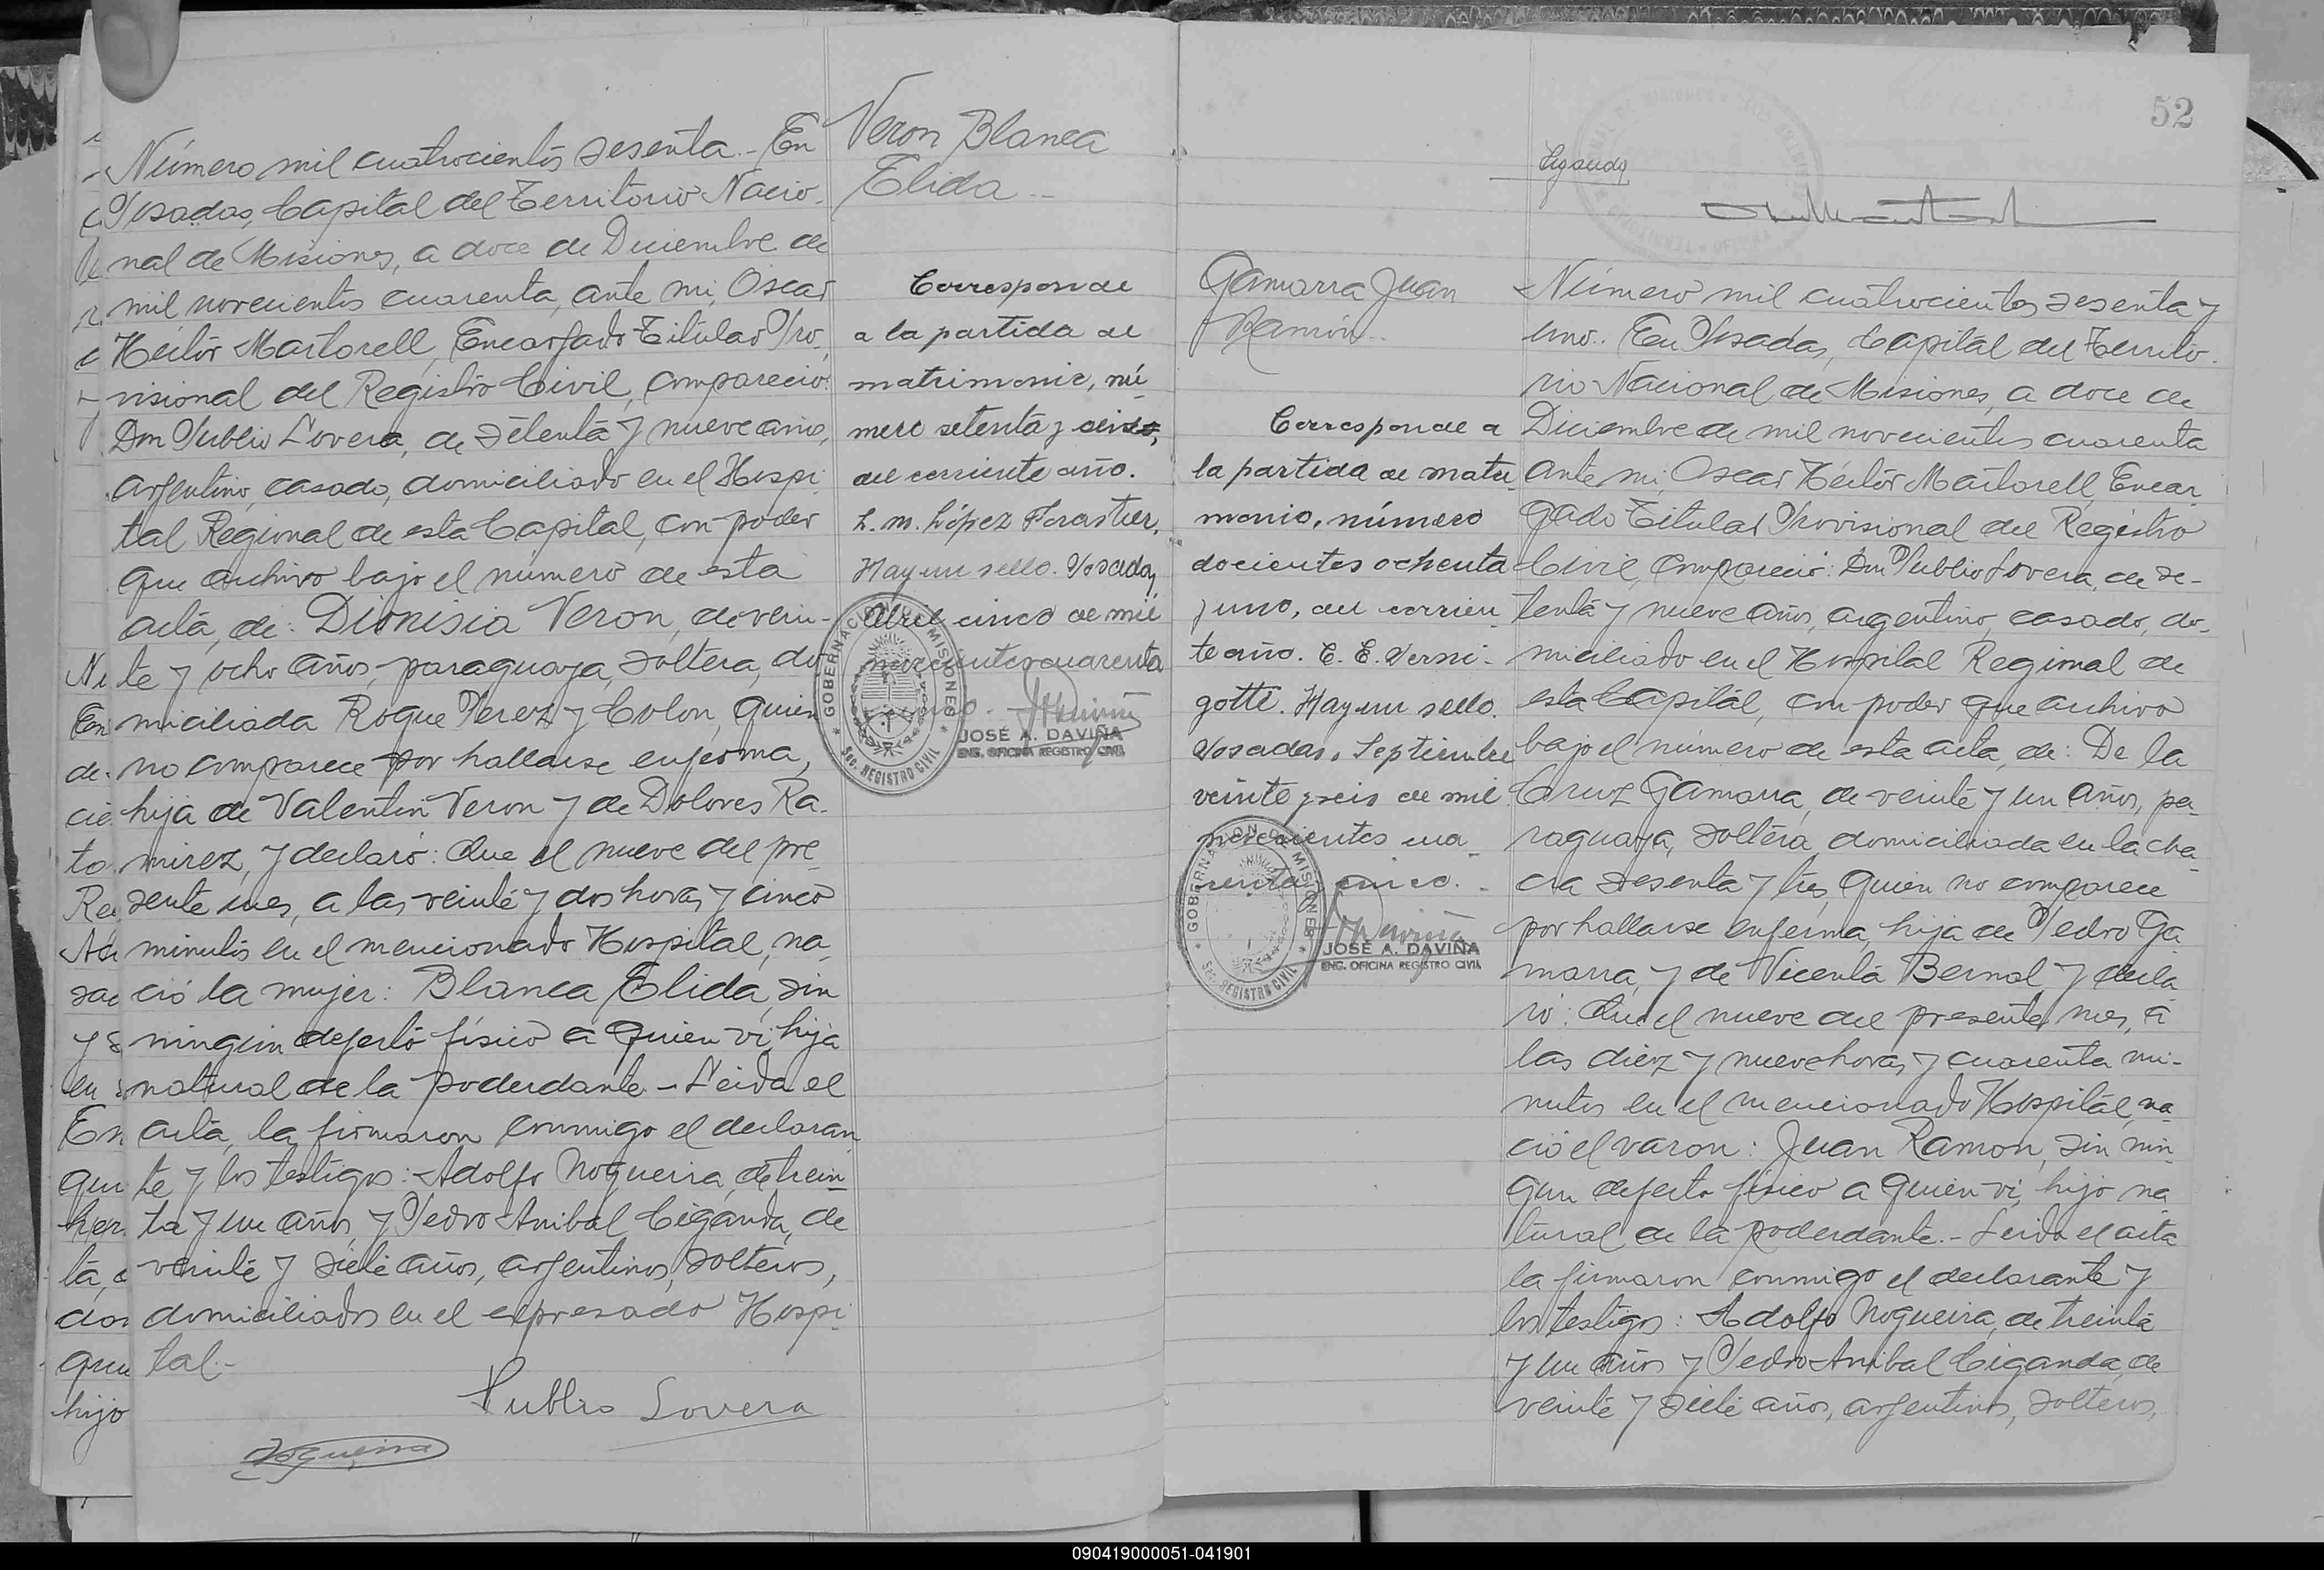 Número mil cuatrocientos sesenta.- En
Posadas, Capital del Territorio Nacio-
nal de Misiones, a doce de Diciembre de
mil novecientos cuarenta, ante mi, Oscar
Héctor Martorell, Encargado Titular Pro-
visional del Registro Civil, compareció:
Don Publio Lovera, de setenta y nueve años,
argentino, casado, domiciliado en el Hospi-
tal Regional de esta Capital, con poder
que archivo bajo el número de esta
acta, de: Dionisia Veron, de vein-
te y ocho años, paraguaya, soltera, do-
miciliada Roque Perez y Colon, quien
no comparece por hallarse enferma,
hija de Valentin Veron y de Dolores Ra-
mirez, y declaró: Que el nueve del pre-
sente mes, a las veinte y dos horas y cinco
minutos en el mencionado Hospital, na-
ció la mujer: Blanca Elida, sin
ningun defecto físico a quien vi, hija
natural de la poderdante.- Leida el
acta, la firmaron conmigo el declaran-
te y los testigos: Adolfo Nogueira, de trein-
ta y un años y Pedro Anibal Ciganda, de
veinte y siete años, argentinos, solteros,
domiciliados en el expresado Hospi-
tal.-
Publio Lovera
Nogueira
Veron Blanca
Elida.-
Corresponde
a la partida de
matrimonio, nú-
mero setenta y cinco,
del corriente año.
L. M. López Forastier.
Hay un sello. Posadas,
Abril cinco de mil
novecientos cuarenta
JOSÉ A. DAVIÑA
ENC. OFICINA REGISTRO CIVIL
GOBERNACION DE MISIONES
* Sec. REGISTRO CIVIL *
52
Ciganda
Gamarra Juan
Ramón.-
Corresponde a
la partida de matri-
monio, número
docientos ochenta
y uno, del corrien-
te año. C. E. Verni-
gotti. Hay un sello.
Posadas, Septiembre
veinte y seis de mil
novecientos cua-
renta y cinco.-
JOSÉ A. DAVIÑA
ENC. OFICINA REGISTRO CIVIL
GOBERNACION DE MISIONES
* Sec. REGISTRO CIVIL *
Número mil cuatrocientos sesenta y
uno.- En Posadas, Capital del Territo-
rio Nacional de Misiones, a doce de
Diciembre de mil novecientos cuarenta
ante mi, Oscar Héctor Martorell, Encar-
gado Titular Provisional del Registro
Civil, compareció: Don Publio Lovera, de se-
tenta y nueve años, argentino, casado, do-
miciliado en el Hospital Regional de
esta Capital, con poder que archivo
bajo el número de esta acta, de: De la
Cruz Gamarra, de veinte y un años, pa-
raguaya, soltera, domiciliada en la cha-
cra sesenta y tres, quien no comparece
por hallarse enferma, hija de Pedro Ga-
marra, y de Vicenta Bernal, y decla-
ró: Que el nueve del presente mes, a
las diez y nueve horas y cuarenta mi-
nutos en el mencionado Hospital, na-
ció el varon: Juan Ramon, sin nin-
gun defecto físico a quien vi, hijo na-
tural de la poderdante.- Leida el acta
la firmaron conmigo el declarante y
los testigos: Adolfo Nogueira, de treinta
y un años y Pedro Anibal Ciganda, de
veinte y siete años, argentinos, solteros,
090419000051-041901